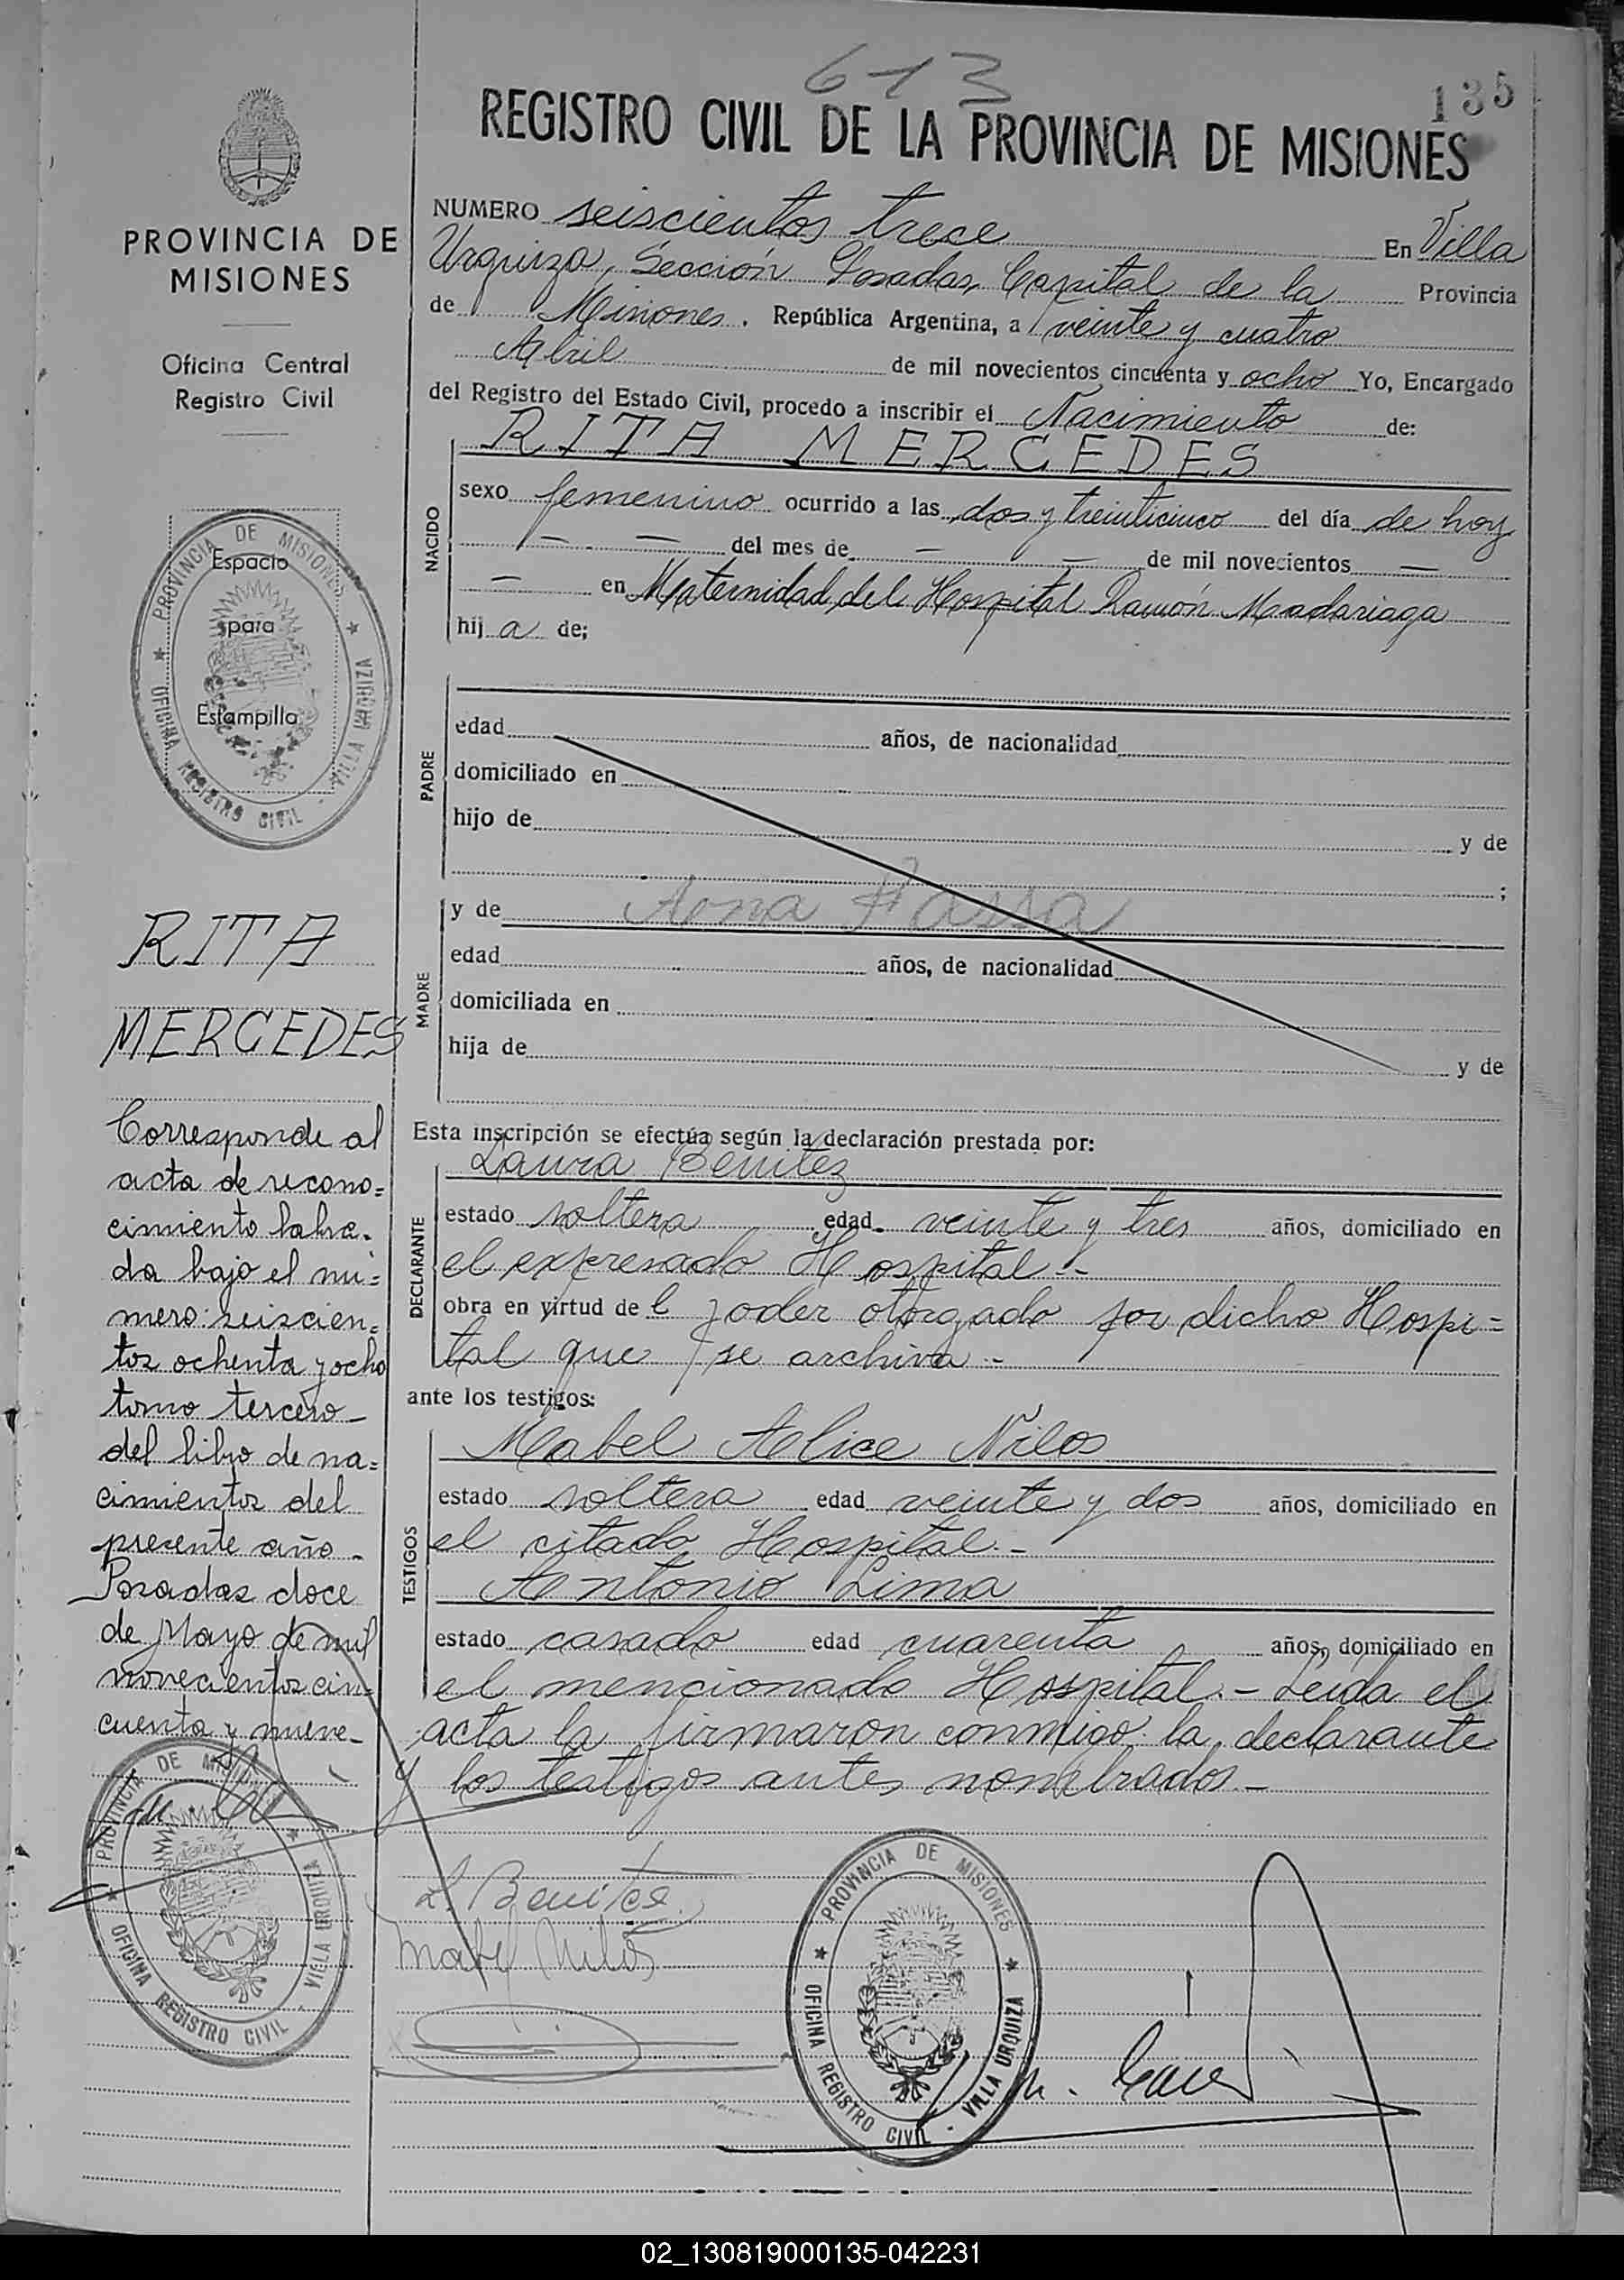 613
135
REGISTRO CIVIL DE LA PROVINCIA DE MISIONES
PROVINCIA DE
MISIONES
Oficina Central
Registro Civil
PROVINCIA DE MISIONES
OFICINA REGISTRO CIVIL - VILLA URQUIZA
Espacio
para
Estampilla
RITA
MERCEDES
Corresponde al
acta de recono=
cimiento labra-
da bajo el nú=
mero seiscien=
tos ochenta y ocho
tomo tercero
del libro de na=
cimientos del
presente año -
Posadas doce
de Mayo de mil
novecientos cin-
cuenta y nueve-
PROVINCIA DE MISIONES
OFICINA REGISTRO CIVIL - VILLA URQUIZA
NUMERO seiscientos trece En Villa
Urquiza, Sección Posadas, Capital de la Provincia
de Misiones. República Argentina, a veinte y cuatro
Abril de mil novecientos cincuenta y ocho Yo, Encargado
del Registro del Estado Civil, procedo a inscribir el Nacimiento de:
RITA MERCEDES
NACIDO
sexo femenino ocurrido a las dos y treinticinco del día de hoy
— — del mes de — — de mil novecientos —
— en Maternidad del Hospital Ramón Madariaga
hij a de;
PADRE
edad años, de nacionalidad
domiciliado en
hijo de y de
;
MADRE
y de
edad años, de nacionalidad
domiciliada en
hija de y de
Esta inscripción se efectúa según la declaración prestada por:
DECLARANTE
Laura Benitez
estado soltera edad veinte y tres años, domiciliado en
el expresado Hospital.-
obra en virtud de l poder otorgado por dicho Hospi=
tal que se archiva.-
ante los testigos:
TESTIGOS
Mabel Alice Nilos
estado soltera edad veinte y dos años, domiciliado en
el citado Hospital.-
Antonio Lima
estado casado edad cuarenta años, domiciliado en
el mencionado Hospital.- Leída el
acta la firmaron conmigo la declarante
y los testigos antes nombrados.-
L. Benitez
Mabel Nilos
PROVINCIA DE MISIONES
OFICINA REGISTRO CIVIL - VILLA URQUIZA
02_130819000135-042231